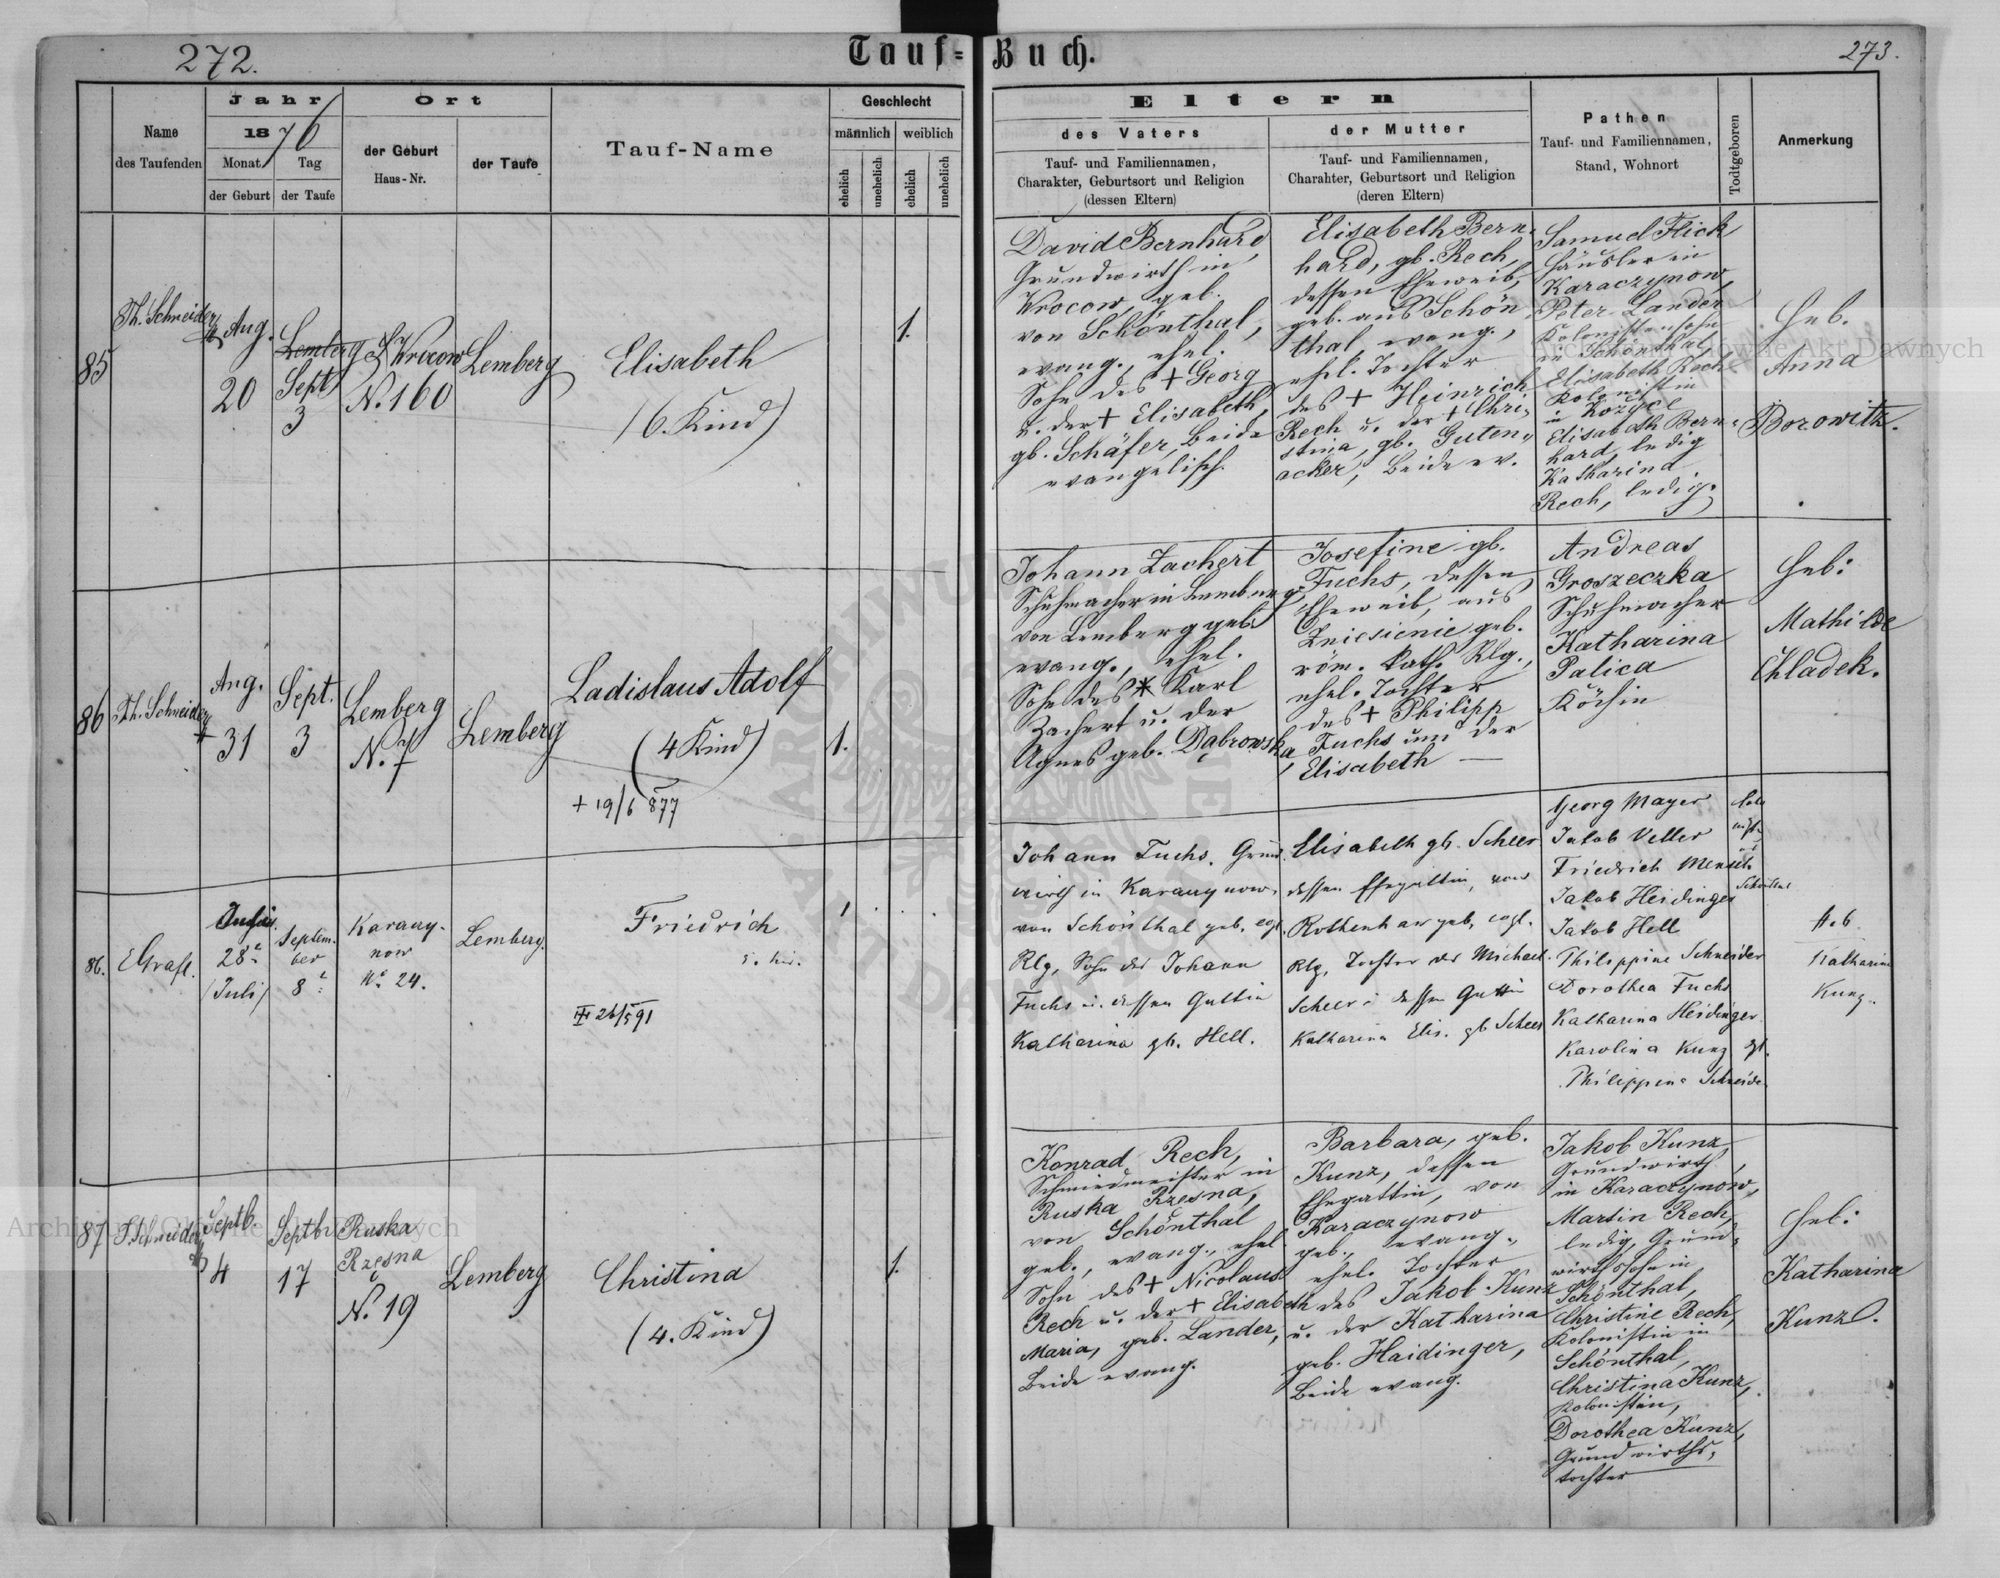 272.
Tauf-
Buch.
273.
Name
des Taufenden
Jahr
1876
Monat
Tag
der Geburt
der Taufe
Ort
der Geburt
Haus-Nr.
der Taufe
Tauf-Name
Geschlecht
männlich
weiblich
ehelich
unehelich
ehelich
unehelich
Eltern
des Vaters
Tauf- und Familiennamen,
Charakter, Geburtsort und Religion
(dessen Eltern)
der Mutter
Tauf- und Familiennamen,
Charahter, Geburtsort und Religion
(deren Eltern)
Pathen
Tauf- und Familiennamen,
Stand, Wohnort
Todtgeboren
Anmerkung
85
Th. Schneider
Aug.
20
Lemberg
Sept
3
Wrocow
N. 160
Lemberg
Elisabeth
(6. Kind)
1.
David Bernhard,
Grundwirth in
Wrocow, geb.
von Schönthal,
evang., ehel.
Sohn des + Georg
u. der + Elisabeth,
gb. Schäfer, beide
evangelisch.
Elisabeth Bern-
hard, gb. Rech,
dessen Eheweib,
geb. aus Schön-
thal evang.,
ehel. Tochter
des + Heinrich
Rech u. der + Chri-
stina, gb. Guten-
acker, beide ev.
Samuel Flick
Häusler in
Karaczynow,
Peter Lander
Kolonistensohn
in Schönthal
Elisabeth Rech
Kolonistin
in Kozyce
Elisabeth Bern-
hard, ledig
Katharina
Rech, ledig.
Heb.
Anna
Borowitz.
86
Th. Schneider
Aug.
31
Sept.
3
Lemberg
N. 7
Lemberg
Ladislaus Adolf
(4 Kind)
+ 19/6 877
1.
Johann Zachert
Schuhmacher in Lemberg
von Lemberg geb.
evang., ehel.
Sohn des * Karl
Zachert u. der
Agnes geb. Dąbrowska
Josefine gb.
Fuchs, dessen
Eheweib, aus
Zniesienie geb.
röm. kath. Rlg.,
ehel. Tochter
des + Philipp
Fuchs und der
Elisabeth —
Andreas
Groszeczka
Schuhmacher
Katharina
Palica
Köchin
Heb:
Mathilde
Chladek.
86.
EGrafl.
28
(Juli)
Septem-
ber
8
Karaczy-
now
No 24.
Lemberg.
Friedrich
5. Ki.
26/5 91
1
Johann Fuchs, Grund-
wirth in Karaczynow,
von Schönthal geb. evgl.
Rlg, Sohn des Johann
Fuchs u. dessen Gattin
Katharina gb. Hell.
Elisabeth gb. Scheer
dessen Ehegattin, von
Rothenhan geb. evgl.
Rlg, Tochter des Michael
Scheer u dessen Gattin
Katharina Elis. gb Scheer
Georg Mayer
Jakob Veller
Friedrich Mensch
Jakob Heidinger
Schönthal
Jakob Hell
Philippine Schneider
Dorothea Fuchs
Katharina Heidinger
Karolina Kunz
Philippine Schneider
Heb
Katharina
Kunz.
87
Septb.
4
Septbr
17
Ruska
Rzęsna
N. 19
Lemberg
Christina
(4. Kind)
1.
Konrad Rech,
Schmiedmeister in
Ruska Rzęsna,
von Schönthal
geb., evang., ehel.
Sohn des + Nicolaus
Rech u. der + Elisabeth
Maria, geb. Lander,
beide evang.
Barbara, geb.
Kunz, dessen
Ehegattin, von
Karaczynow
geb., evang.,
ehel. Tochter
des Jakob Kunz
u. der Katharina
geb. Haidinger,
beide evang.
Jakob Kunz,
Grundwirth
in Karaczynow,
Martin Rech,
ledig, Grund-
wirthssohn in
Schönthal,
Christine Rech,
Kolonistin in
Schönthal,
Christina Kunz,
Kolonistin,
Dorothea Kunz,
Grundwirths-
tochter
Heb:
Katharina
Kunz.
Archiwum Główne Akt Dawnych
Archiwum Główne Akt Dawnych